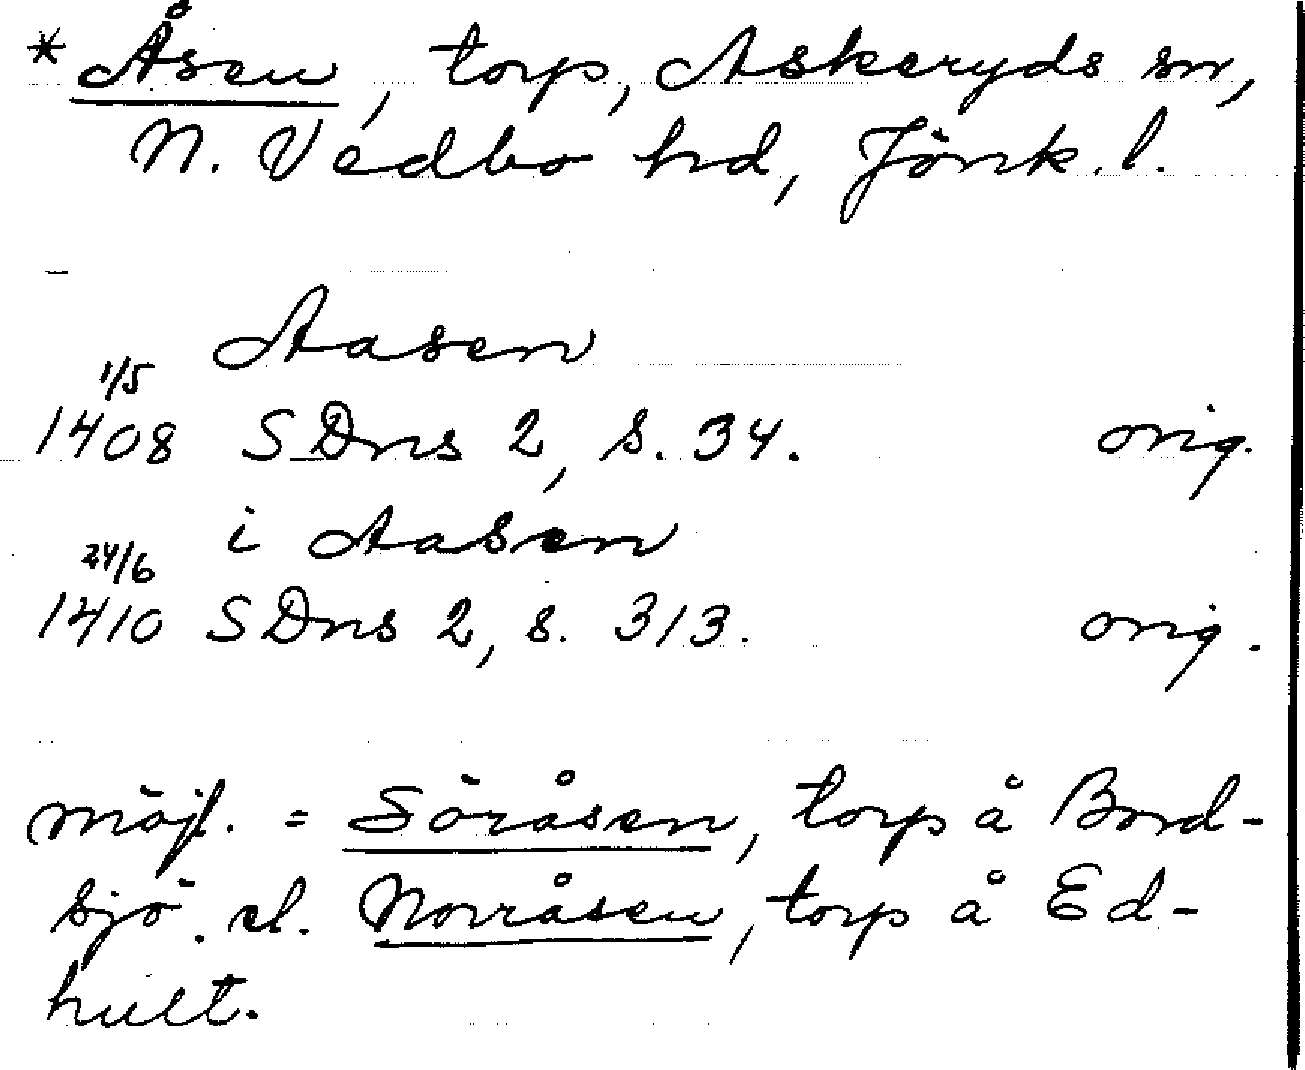 * Åsen, torp, Askeryds sn,
N. Vedbo hd, Jönk. l.
Aasen
1/5
1408 SDns 2, s. 34. orig.
i Aasen
24/6
1410 SDns 2, s. 313. orig.
möjl. = Söråsen, torp å Bord-
sjö. el. Norråsen, torp å Ed-
hult.